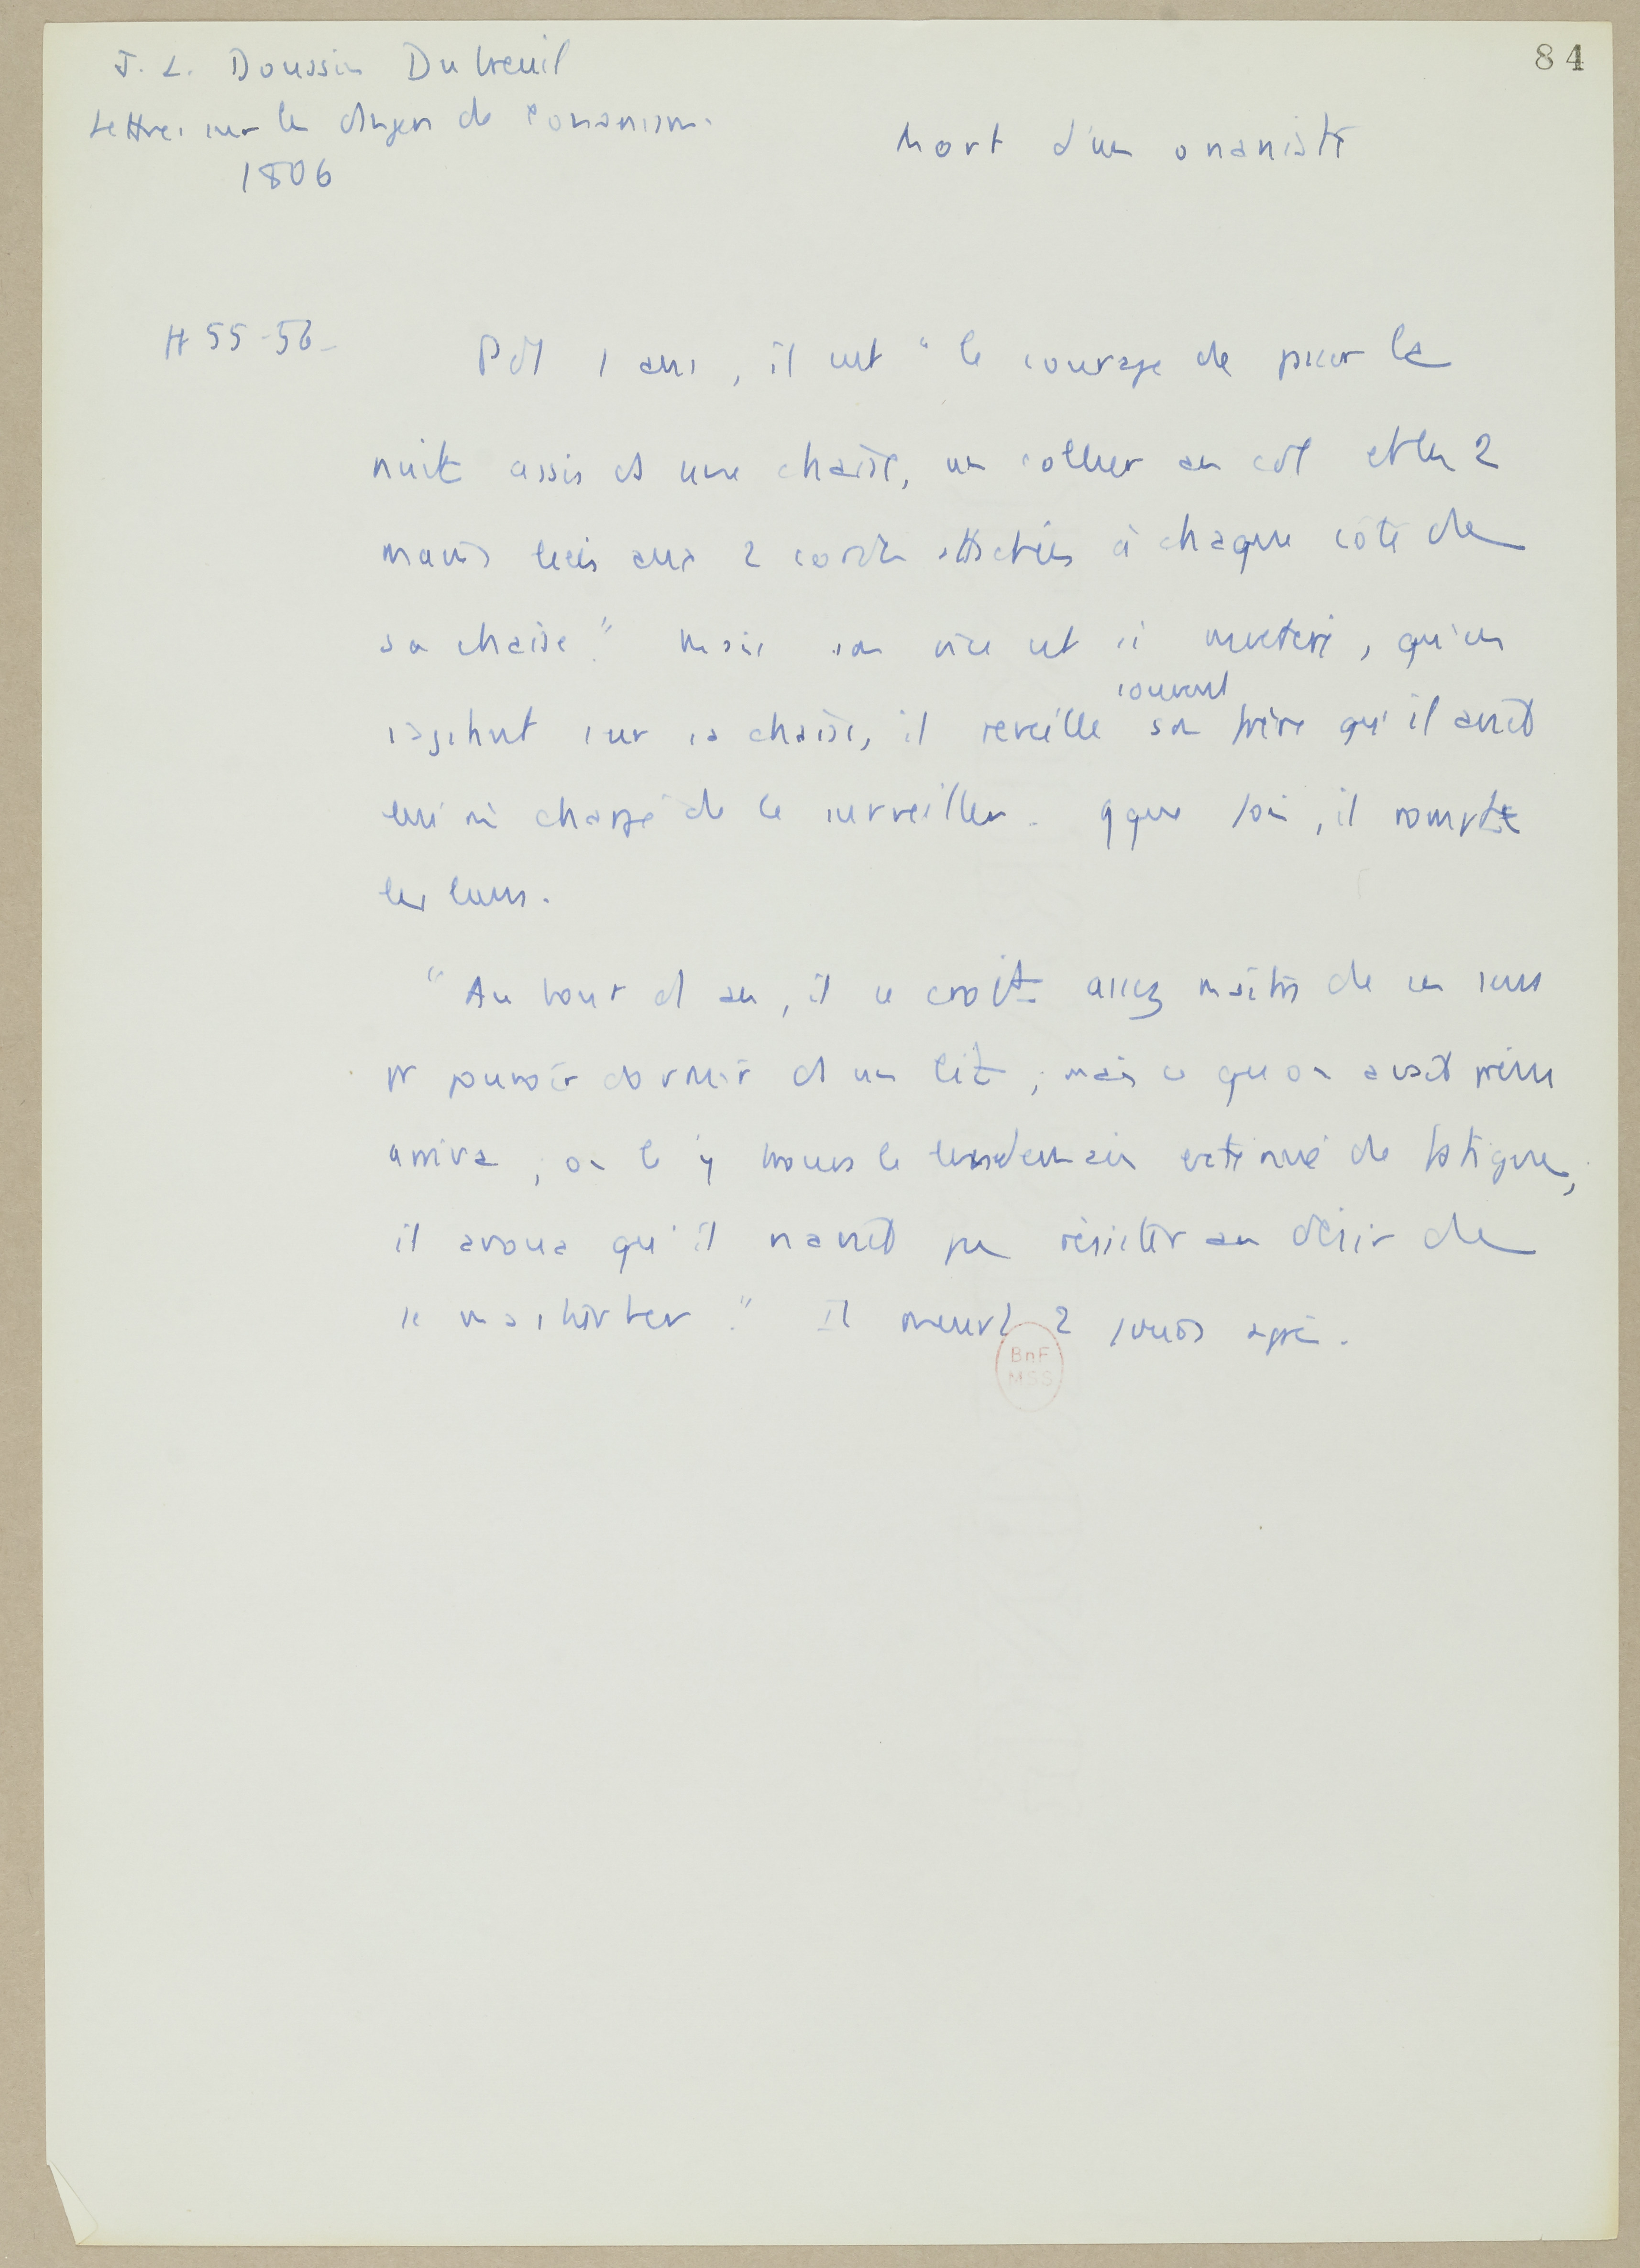 84
J. L. Doussin Dubreuil
Lettres sur les dangers de l'onanisme.
1806
Mort d'un onaniste
# 55-56_
Pdt 1 ans, il eut " le courage de passer la
nuit assis ds une chaise, un collier au col et les 2
mains liées aux 2 cordes attachées à chaque côté de
sa chaise." Mais son vice est si invétéré, qu'en
s'agitant sur sa chaise, il réveille souvent son frère qu'il avait
lui mê chargé de le surveiller. qque fois, il rompt
les liens.
"Au bout d'1 an, il se croit assez maître de ses sens
pr pouvoir dormir ds un lit ; mais ce qu'on avait prévu
arriva ; on l'y trouva le lendemain exténué de fatigue,
il avoua qu'il n'avait pu résister au désir de
se masturber." Il meurt 2 mois après.
BnF
MSS